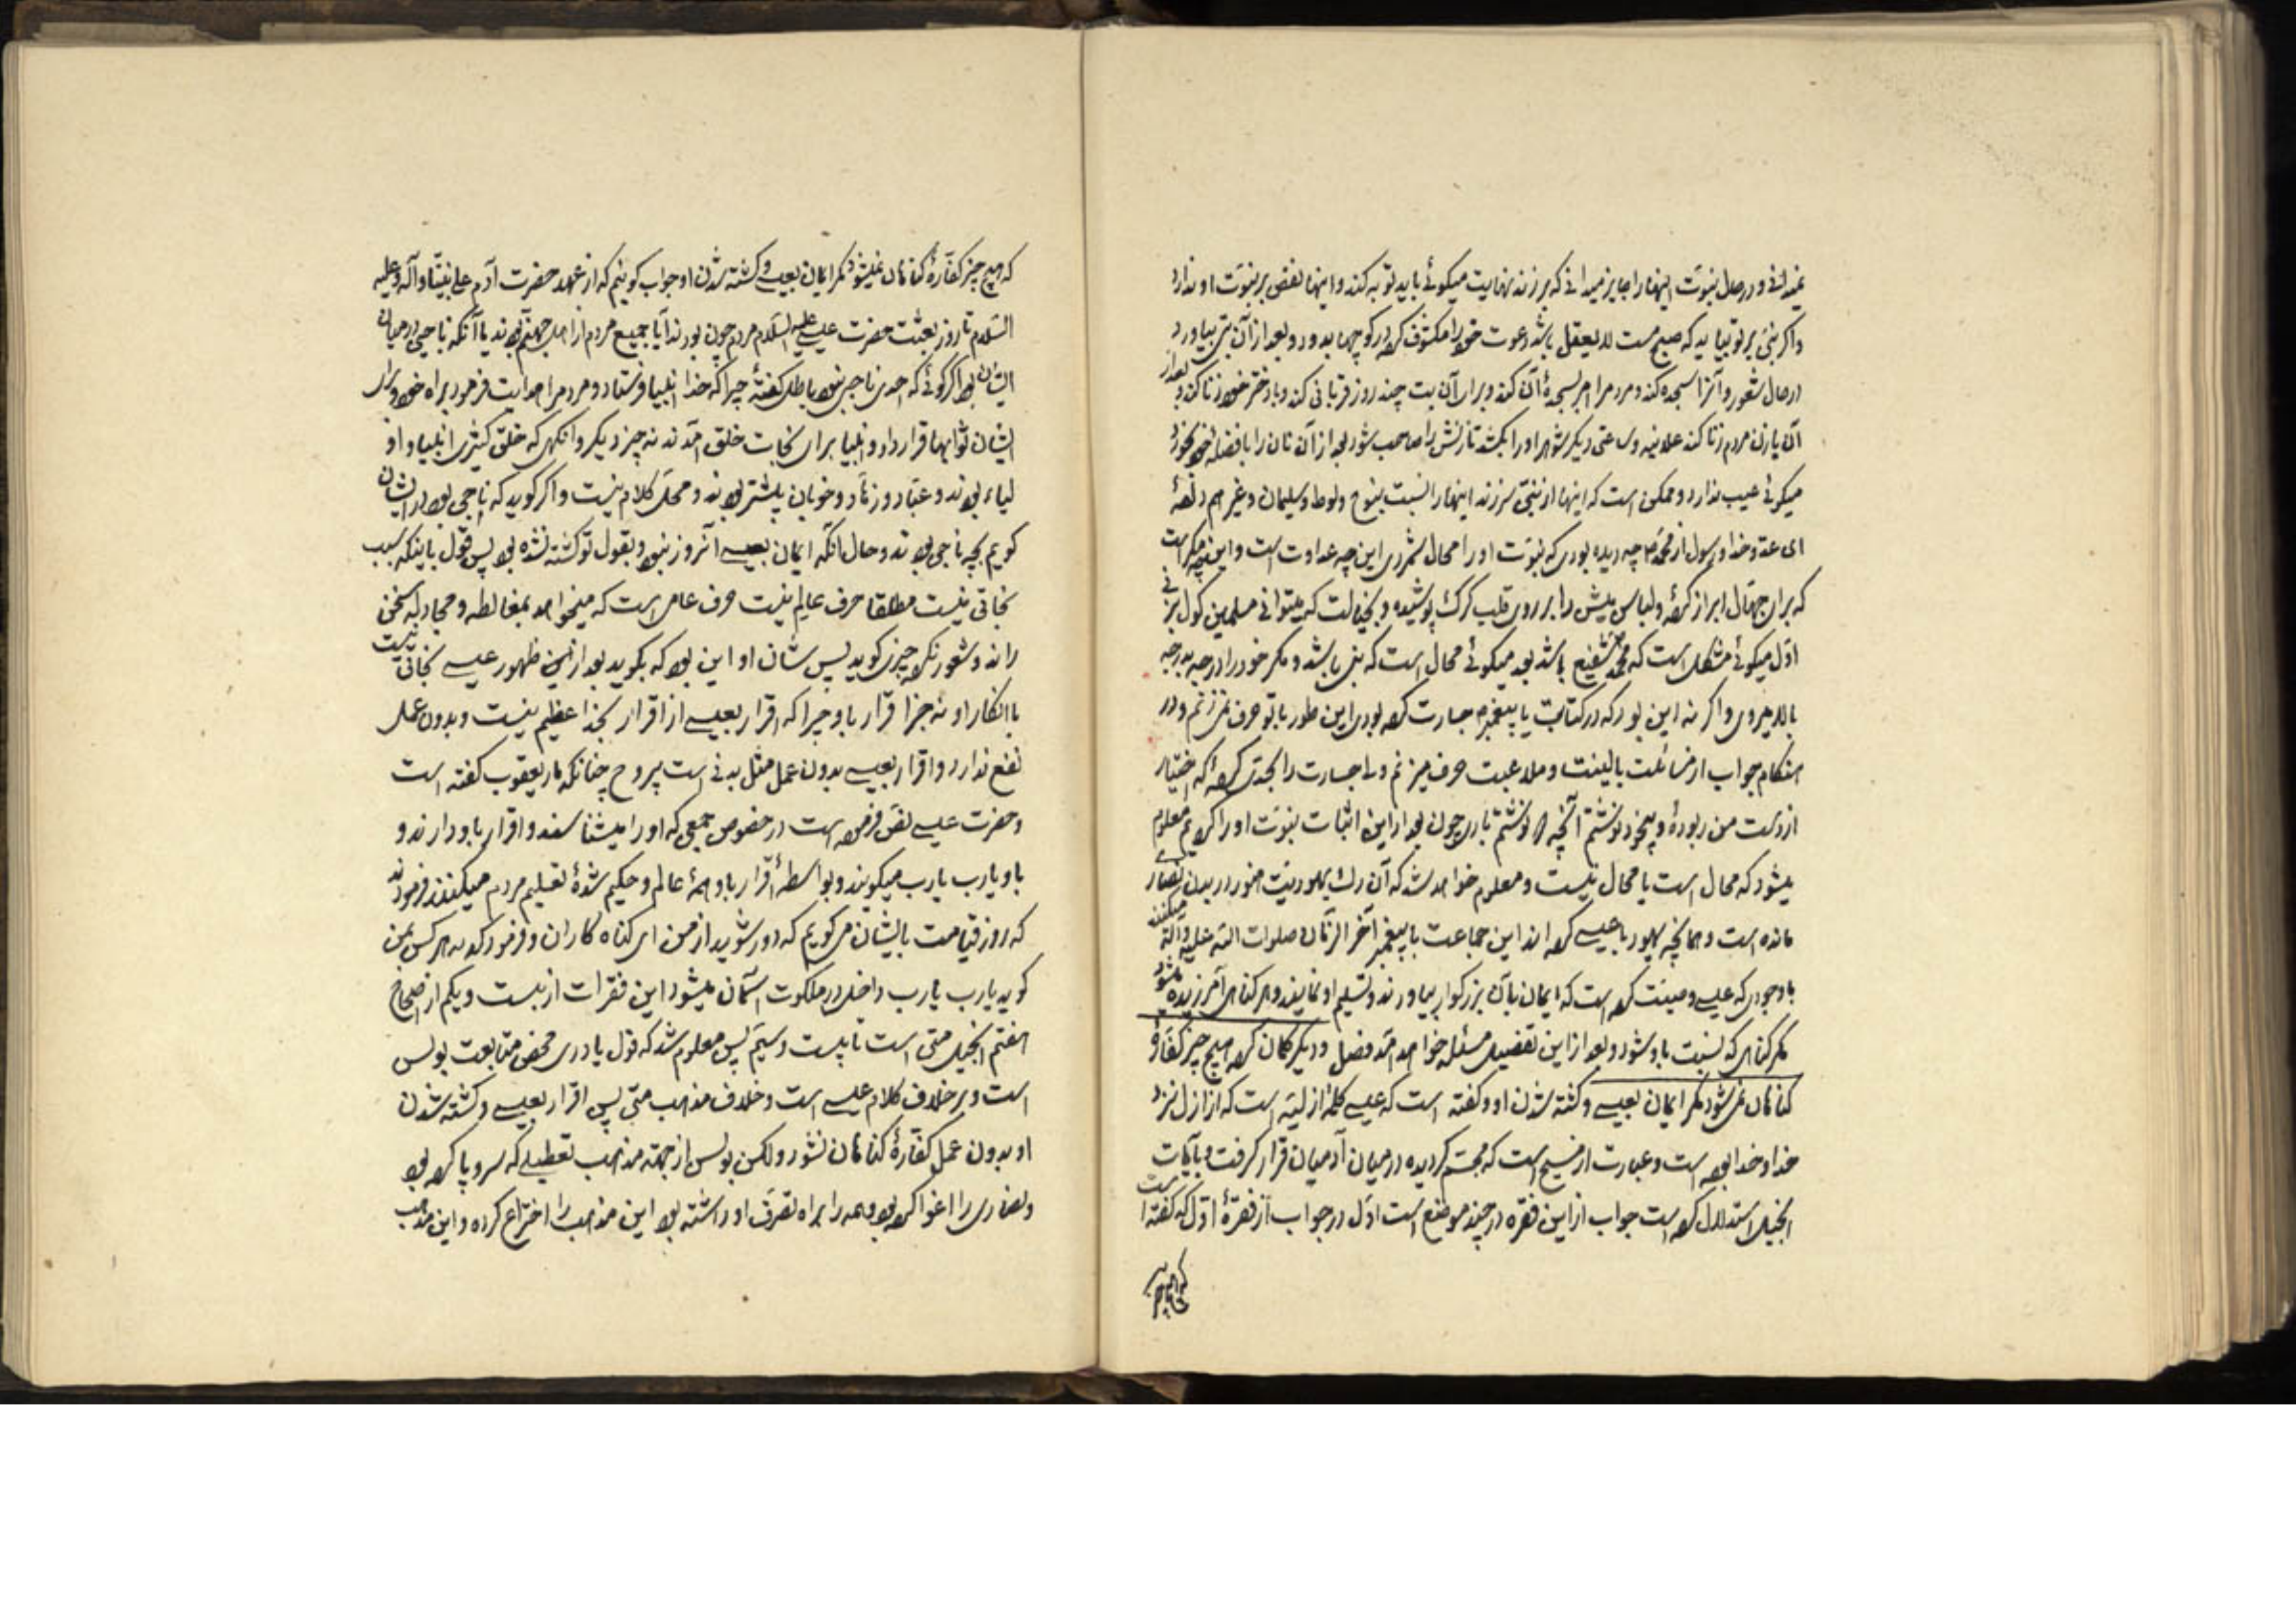 نمیدانی و در حال نبوّت اینها را جایز میدانی که هر زند نهایت میکوئی باید توبه کند و اینها نقض بر نبوّت او ندارد
و اکر نبیّ بر تو بیاید که صبح مست لا یعقل باشد دعوت خود را مکشوف کرده در کوچها بدود و بعد از آن بتی بیاورد
در حال شعور و آنرا سجده کند و مردم را امر بسجدهٔ آن کند و برای آن بت چند روز قربانی کند و با دختر خود زنا کند و بعد از
آن با زن مردم زنا کند علانیه و ساعتی دیکر شوهر او را بکشد تا زنش را صاحب شود بعد از آن نان را با فضله خود بخورد
میکوئی عیب ندارد و ممکن است که اینها از نبیّ سر زند اینها را نسبت بنوح و لوط و سلیمان و غیرهم دادهٔ
ای عدوّ خدا و رسول از محمّد چه دیده بودی که نبوّت او را محال شمردی این چه عداوت است و این چه مکر است
که برای جهّال ابراز کردهٔ و لباس میش را بر روی قلب کرک پوشیده و بخیالت که میتوانی مسلمین کول بزنی
اوّل میکوئی مشکل است که محمّد شفیع باشد بعد میکوئی محال است که نبی باشد و مکر خود را درجه بدرجه
بالا میروی و اکر نه این بود که در کتابت با پیغمبر جسارت کرده بودی این طور با تو حرف نمیزنم و در
هنکام جواب از مسائلت بالینت و ملاعبت حرف میزنم ولی جسارت را بحدّی کردهٔ که اختیار
از دست من ربودهٔ و بیخود نوشتم آنچه را نوشتم باری چون بعد از این اثبات نبوّت او را کردیم معلوم
میشود که محال است یا محال نیست و معلوم خواهد شد که آن رک یهودیت هنوز در میان نصاری
مانده است و همانچه یهود با عیسی کردند این جماعت با پیغمبر آخر الزّمان صلوات اللّه علیه و آله میکنند
با وجودی که عیسی وصیّت کرده است که ایمان بآن بزرکوار بیاورند و تسلیم او نمایند و هر کناهی آمرزیده میشود
مکر کناهی که نسبت باو شود و بعد از این تفضیل مسئله خواهد آمد فصل و دیکر کمان کرده هیچ چیز کفّارهٔ
کناهان نمیشود مکر ایمان بعیسی و کشته شدن او و کفته است که عیسی کلمهٔ ازلیّه است که از ازل نزد
خدا و خدا بوده است و عبارت از مسیح است که مجسّم کردیده در میان آدمیان قرار کرفت و بآیات
انجیل استدلال کرده است جواب از این فقره در چند موضع است اوّل در جواب از فقرهٔ اوّل که کفته است
که هیچ چیز
که هیچ چیز کفّارهٔ کناهان نمیشود مکر ایمان بعیسی و کشته شدن او جواب کوئیم که از عهد حضرت آدم علی نبیّنا و آله و علیه
السّلام تا روز بعثت حضرت عیسی علیه السّلام مردم چون بودند آیا جمیع مردم از اهل جهنّم بودند یا آنکه ناجی در میان
ایشان بود اکر کوئی که احدی ناجی نبود باطل کفتهٔ چرا که خدا انبیا فرستاد و مردم را هدایت فرمود براه خود و برای
ایشان ثوابها قرار داد و انبیا برای نجات خلق آمدند نه چیز دیکر وانکهی که خلق کثیری انبیا و او
لیاء بودند و عبّاد و زهّاد و خوبان بیشتر بودند و محلّ کلام نیست و اکر کوید که ناجی بود در ایشان
کویم بچه ناجی بودند و حال آنکه ایمان بعیسی آنروز نبود و بقول تو کشته نشده بود پس قول باینکه سبب
نجاتی نیست مطلقا حرف عالم نیست حرف عامی است که میخواهد بمغالطه و مجادله سخن
راند و شعور نکرده چیزی کوید پس شان او این بود که بکوید بعد از این ظهور عیسی نجاتی نیست
با انکار او نه جز اقرار باو چرا که اقرار بعیسی از اقرار بخدا عظیم نیست و بدون عمل
نفع ندارد و اقرار بعیسی بدون عمل مثل بدنی است بیروح چنانکه مار یعقوب کفته است
و حضرت عیسی نصّ فرموده است در خصوص جمعی که او را میشناسند و اقرار باو دارند و
باو یارب یارب میکویند و بواسطهٔ اقرار باو همهٔ عالم و حکیم شدهٔ تعلیم مردم میکنند فرمودند
که روز قیامت بایشان میکویم که دور شوید از من ای کناه کاران و فرمود که نه هر کس بمن
کوید یارب یارب داخل در ملکوت آسمان میشود این فقرات از بیست و یکم از اصحاح
هفتم انجیل متی است تا بیست و سیّم پس معلوم شد که قول پادری محض متابعت بولس
است و بر خلاف کلام عیسی است و خلاف مذهب متی پس اقرار بعیسی و کشته شدن
او بدون عمل کفّارهٔ کناهان نشود ولکن بولس از جهة مذهب تعطیلی که سر و پا کرده بود
و نصاری را اغوا کرده بود و همه را براه تصرّف او داشته بود این مذهب را اختراع کرده و این مذهب